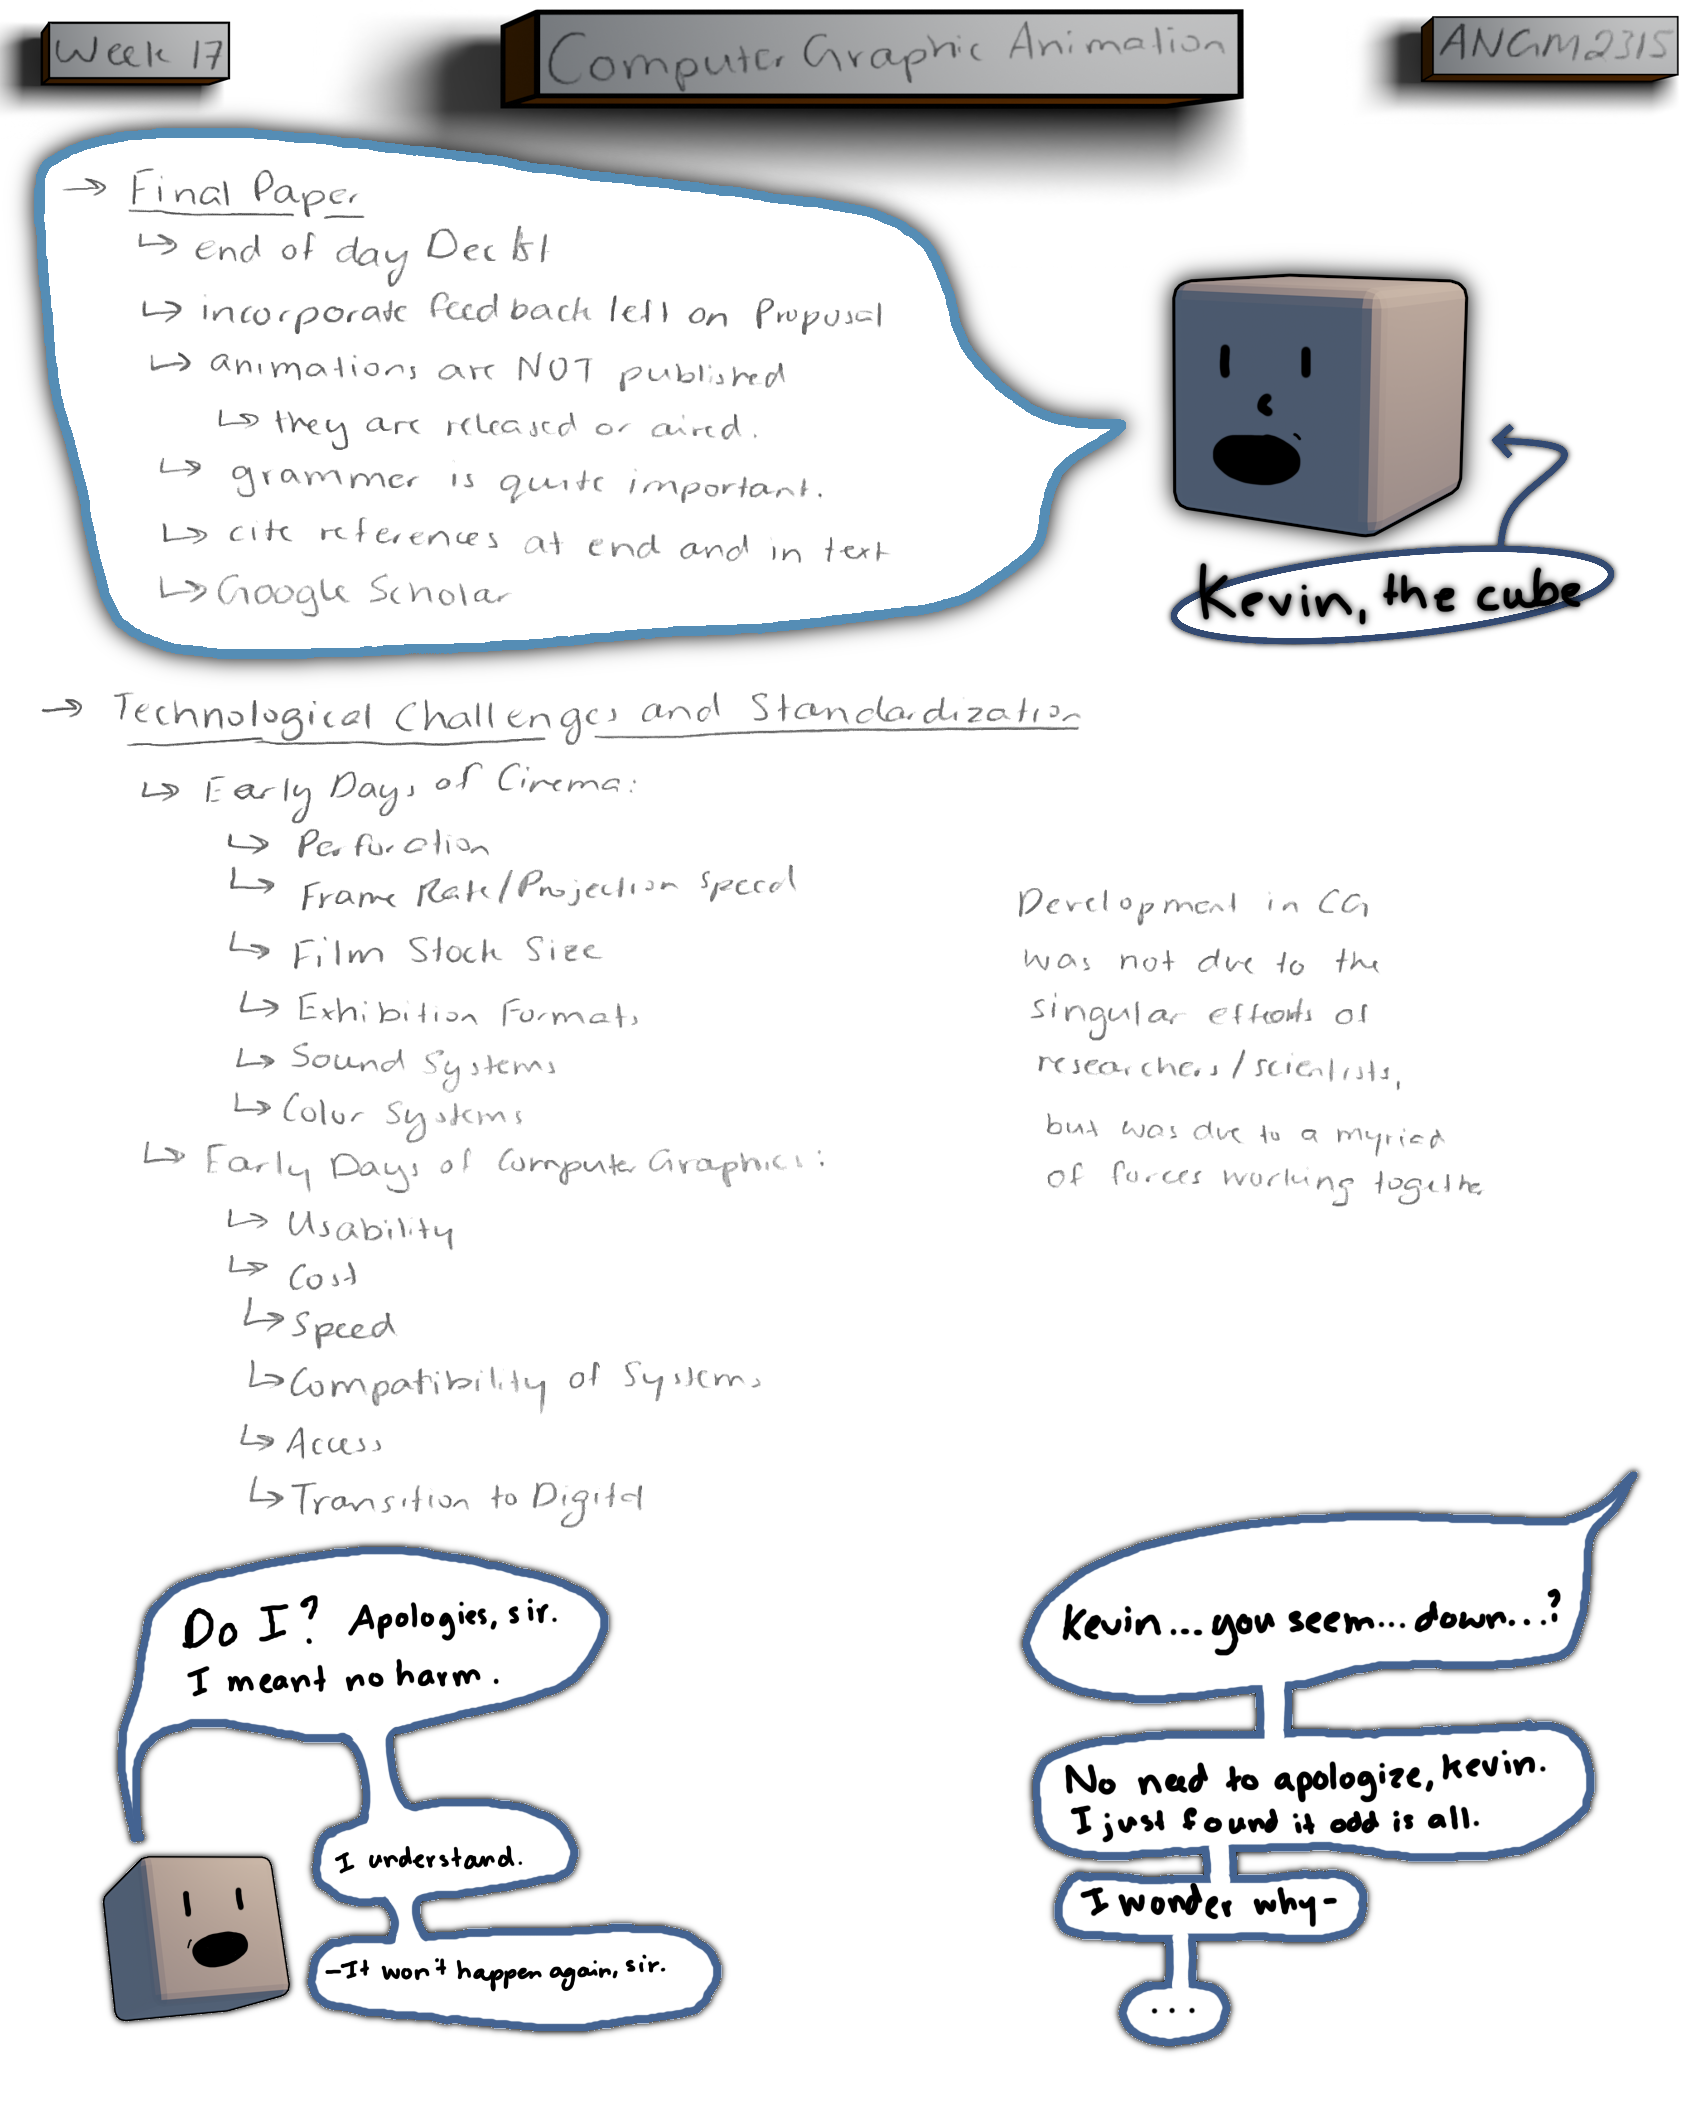 Week 17
Computer Graphic Animation
ANGM2315
→ Final Paper
↳ end of day Dec 1st
↳ incorporate feedback left on Proposal
↳ animations are NOT published
↳ they are released or aired.
↳ grammer is quite important.
↳ cite references at end and in text
↳ Google Scholar
Kevin, the cube
→ Technological Challenges and Standardization
↳ Early Days of Cinema:
↳ Perforation
↳ Frame Rate/Projection speed
↳ Film Stock Size
↳ Exhibition Formats
↳ Sound Systems
↳ Color Systems
↳ Early Days of Computer Graphics:
↳ Usability
↳ Cost
↳ Speed
↳ Compatibility of Systems
↳ Access
↳ Transition to Digital
Development in CG
was not due to the
singular efforts of
researchers/scientists,
but was due to a myriad
of forces working together
Kevin...you seem...down...?
Do I? Apologies, sir.
I meant no harm.
No need to apologize, Kevin.
I just found it odd is all.
I understand.
I wonder why-
-It won't happen again, sir.
...